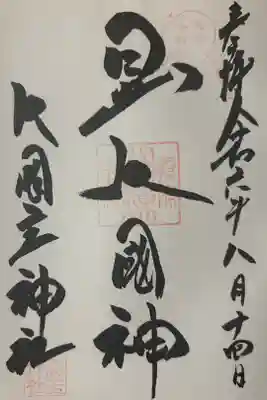 奉拝 令和六年八月十四日
大國神
大國主神社